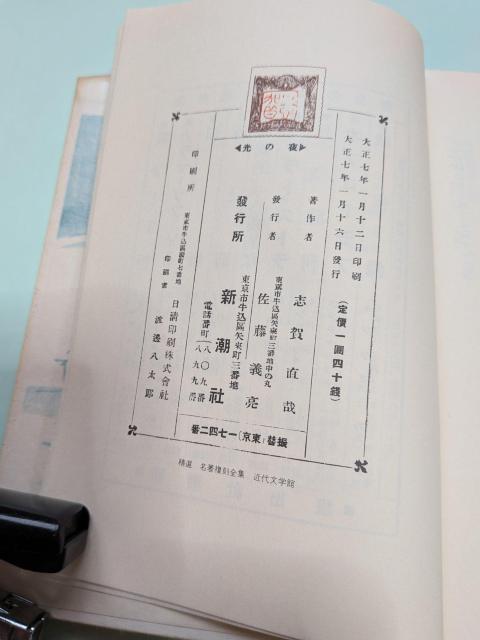 ◀夜の光▶
大正七年一月十二日印刷
大正七年一月十六日發行
(定價一圓四十錢)
著作者 志賀直哉
東京市牛込區矢來町三番地中の丸
發行者 佐藤義亮
發行所 東京市牛込區矢來町三番地
新潮社
電話番町 八〇九番
八九九番
振替(東京)一七四二番
印刷所 日清印刷株式會社
印刷者 渡邊八太郎
精選 名著複刻全集 近代文学館